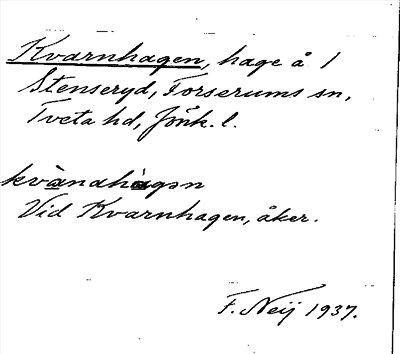 Kvarnhagen, hage å 1
Stenseryd, Forserums sn,
Tveta hd, Jönk. l.
kvàndhàgən
Vid Kvarnhagen, åker.
F. Neij 1937.